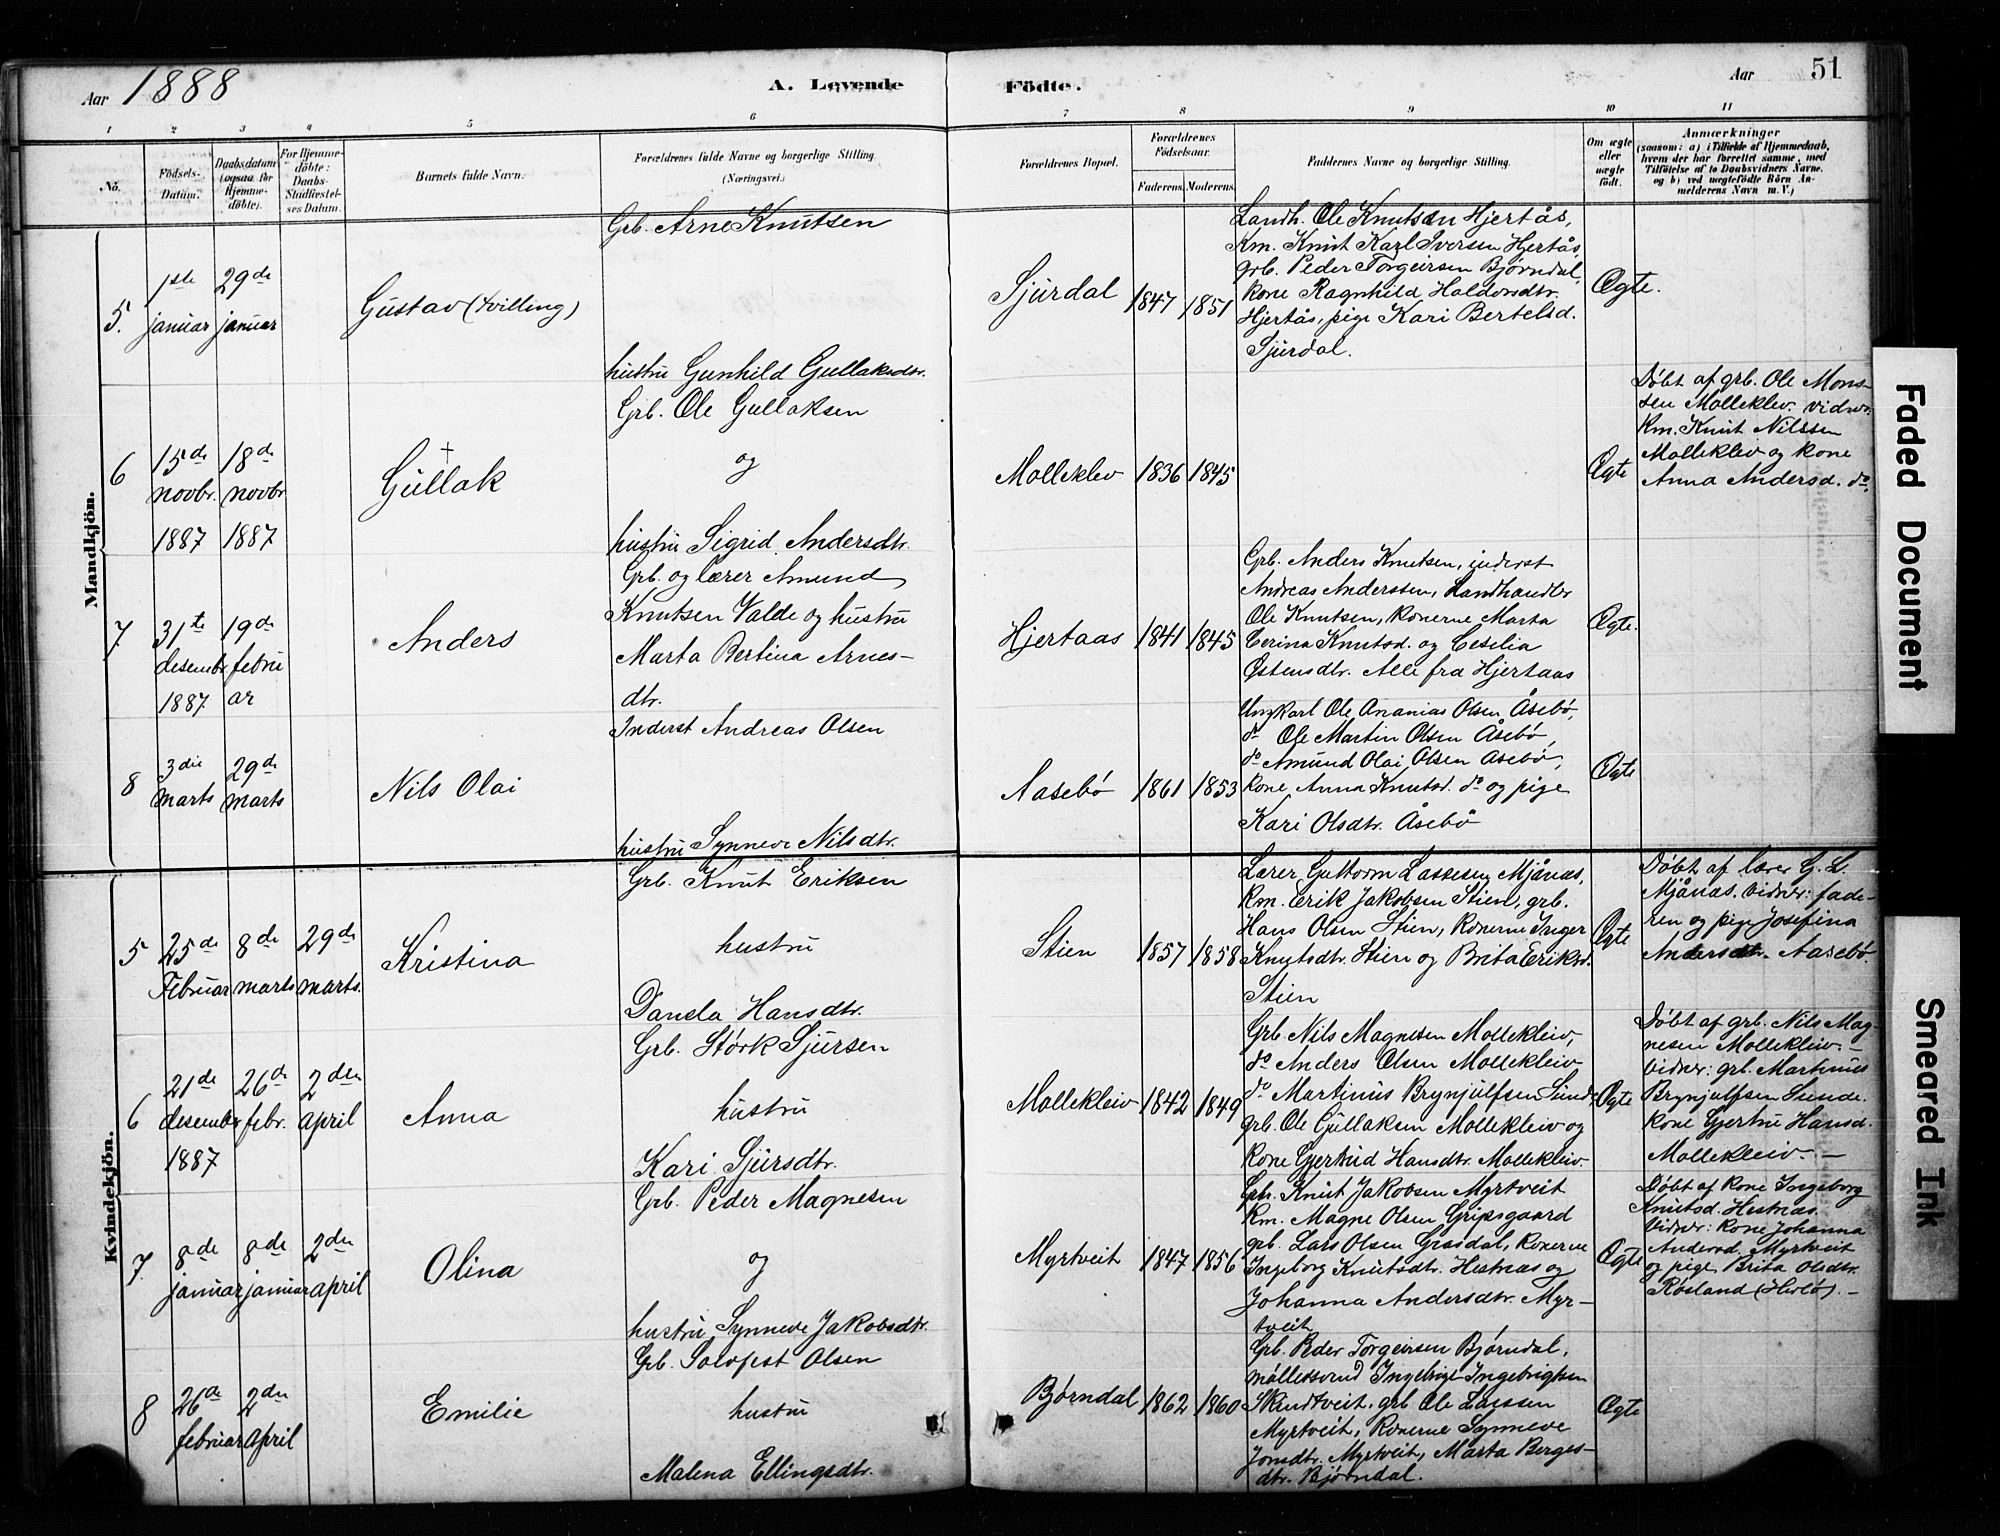 Aar 1888
A. Levende Fødte.
Aar 51
1 2 3 4 5 6 7 8 9 10 11
No.
Födsels-Datum.
Daabsdatum (ogsaa for Hjemme-döbte).
For Hjemme-döbte: Daabs-Stadfæstel-ses Datum.
Barnets fulde Navn.
Forældrenes fulde Navne og borgerlige Stilling. (Næringsvei.)
Forældrenes Bopæl.
Forældrenes Födselsaar.
Faderens. Moderens.
Faddernes Navne og borgerlige Stilling.
Om ægte eller uægte født.
Anmærkninger
(saasom: a) i Tilfælde af Hjemmedaab, hvem der har forrettet samme, med Tilföielse af to Daabsvidners Navne, og b) ved uægtefödte Börn An-melderens Navn m. V.)
Mandkjön.
5.
1ste januar
29de januar
Gustav (tvilling)
Grb. Arne Knutsen
hustru Gunhild Gullaksdtr.
Sjurdal
1847 1851
Landh. Ole Knutsen Hjertås,
Km. Knut Karl Iversen Hjertås,
grb. Peder Torgeirsen Bjørndal,
kone Ragnhild Haldorsdtr.
Hjertås, pige Kari Bertelsd.
Sjurdal.
Ægte.
6
15de novbr. 1887
18de novbr 1887
+
Gullak
Grb. Ole Gullaksen
og
hustru Sigrid Andersdtr.
Molleklev
1836 1845
Ægte
Døbt af grb. Ole Mons-
sen Molleklev. vidner.
Km. Knut Nilssen
Molleklev og kone
Anna Andersd. do.
7
31te desembr. 1887
19de februar
Anders
Grb. og lærer Amund
Knutsen Valde og hustru
Marta Bertina Arnes-
dtr.
Hjertaas
1841 1845
Grb. Anders Knutsen, inderst
Andreas Anderssen, Landhandler
Ole Knutsen, konerne Marta
Cerina Knutsd. og Cesilia
Østensdtr. Alle fra Hjertaas
Ægte.
8
3die marts
29de marts
Nils Olai
Inderst Andreas Olsen
hustru Synneve Nilsdtr.
Aasebø
1861 1853
Ungkarl Ole Ananias Olsen Åsebø,
do Ole Martin Olsen Åsebø,
do Amund Olai Olsen Åsebø,
kone Anna Knutsd. do og pige
Kari Olsdtr. Åsebø
Ægte
Kvindekjön.
5
25de Februar
8de marts
29de marts.
Kristina
Grb. Knut Eriksen
hustru
Danela Hansdtr.
Stien
1857 1858
Lærer Guttorm Lassesen Mjånæs,
Km. Erik Jakobsen Stien, grb.
Hans Olsen Stien, Konerne Inger
Knutsdtr. Stien og Brita Eriksd.
Stien
Ægte
Døbt af lærer G. L.
Mjånæs. vidner: fade-
ren og pige Josefina
Andersdtr. Aasebø.
6
21de desember 1887
26de febr.
2den april
Anna
Grb. Størk Sjursen
hustru
Kari Sjursdtr.
Mollekleiv
1842 1849
Grb. Nils Magnesen Mollekleiv,
do Anders Olsen Mollekleiv
do Martinus Brynjulfsen Sunde,
grb. Ole Gullaksen Mollekleiv og
Kone Gjertrud Hansdtr. Mollekleiv.
Ægte
Døbt af grb. Nils Mag-
nesen Mollekleiv. —
vidner: grb. Martinus
Brynjulfsen Sunde.
kone Gjertru Hansd.
Mollekleiv. —
7.
8de januar
8de januar
2den april
Olina
Grb. Peder Magnesen
og
hustru Synneve Jakobsdtr.
Myrtveit
1847 1856
Grb. Knut Jakobsen Myrtveit
Km. Magne Olsen Gripsgaard
grb. Lars Olsen Grasdal, Konerne
Ingeborg Knutsdtr. Hestnæs og
Johanna Andersdtr. Myr-
tveit
Ægte
Døbt af kone Ingeborg
Knutsd. Hestnæs.
Vidner: kone Johanna
Andersd. Myrtveit
og pige Brita Olsdtr.
Røsland (Herlø). —
8
26de februar
2den april
Emilie
Grb. Solvfest Olsen
hustru
Malena Ellingsdtr.
Bjørndal
1862 1860
Grb. Peder Torgeirsen Bjørndal,
møllesvend Ingebrigt Ingebrigtsen
Skindtveit. grb Ole Larssen
Myrtveit, Konerne Synneve
Jonsdtr. Myrtveit, Marta Berges-
dtr. Bjørndal.
Ægte
Faded Document
Smeared Ink